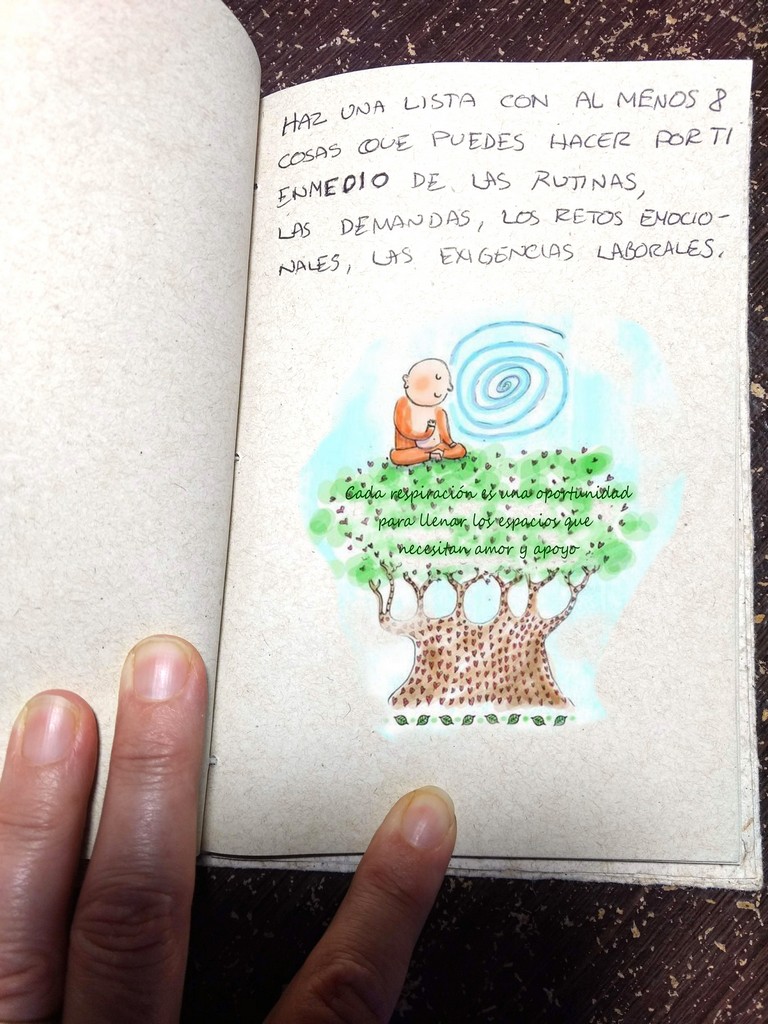 HAZ UNA LISTA CON AL MENOS 8
COSAS QUE PUEDES HACER POR TI
ENMEDIO DE LAS RUTINAS,
LAS DEMANDAS, LOS RETOS EMOCIO-
NALES, LAS EXIGENCIAS LABORALES.
Cada respiración es una oportunidad
para llenar los espacios que
necesitan amor y apoyo